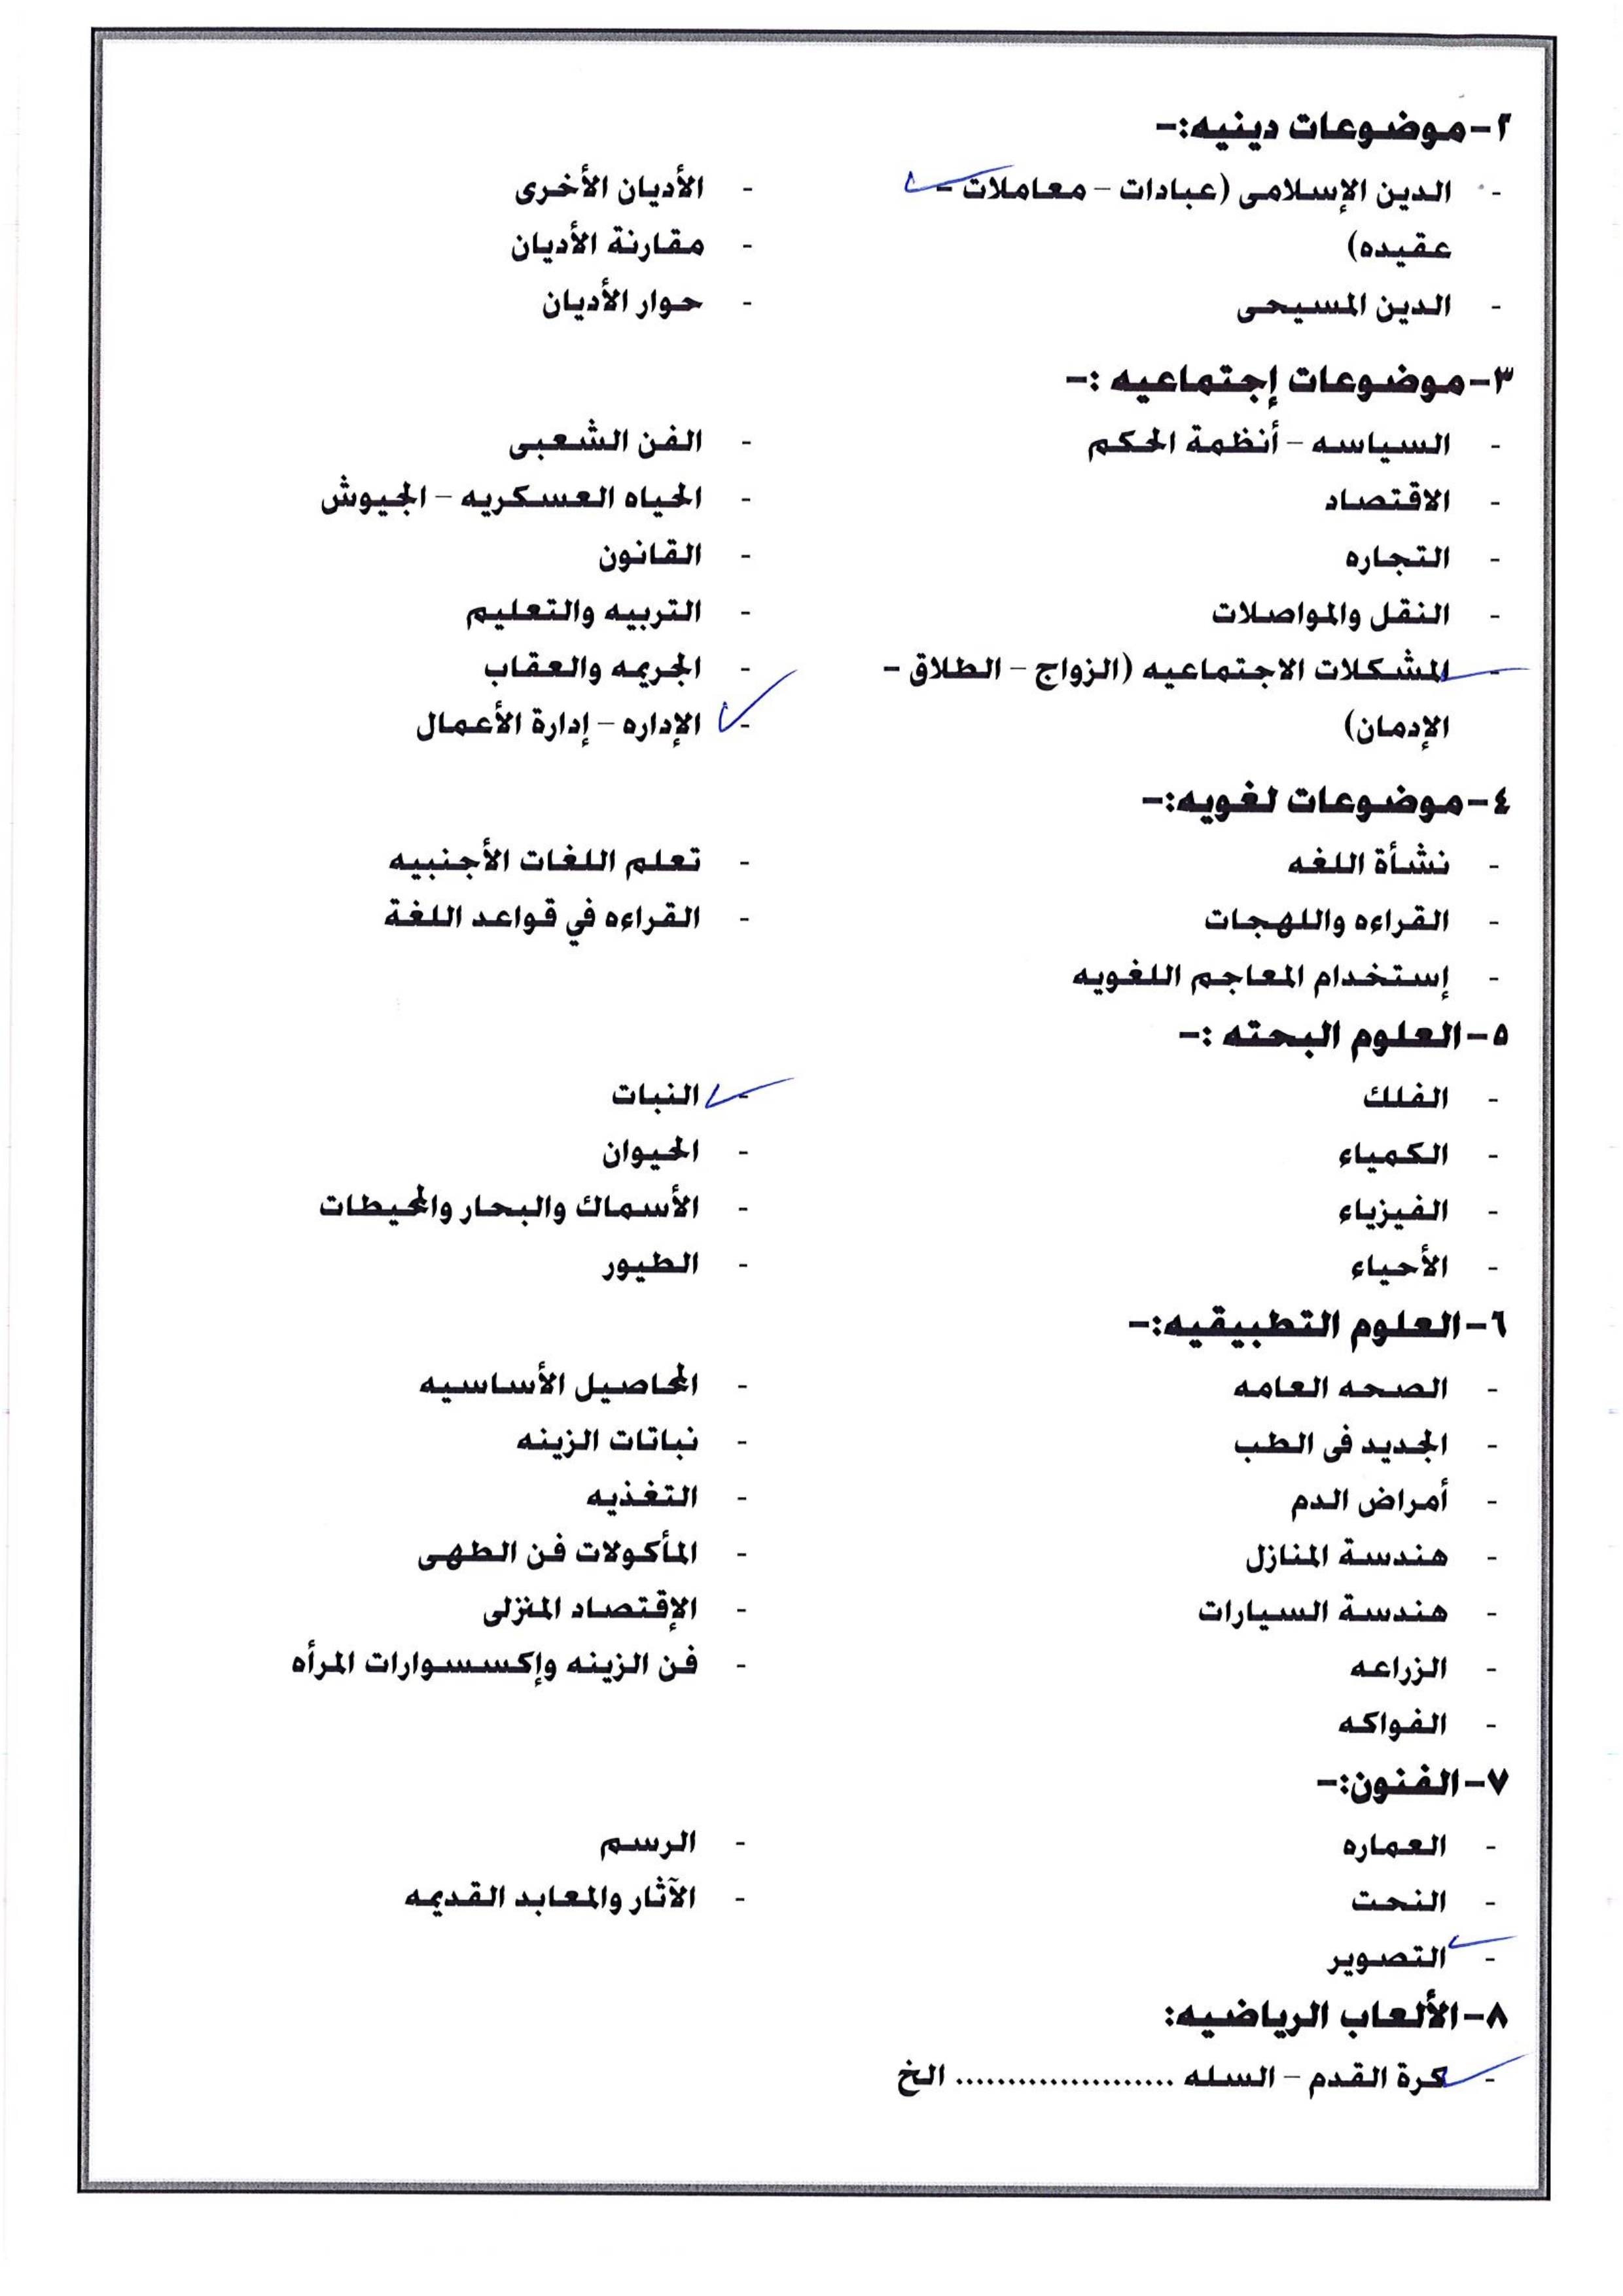 ٢-موضوعات دينيه:-
- الدين الإسلامى (عبادات - معاملات -
عقيده)
- الدين المسيحى
- الأديان الأخرى
- مقارنة الأديان
- حوار الأديان
٣-موضوعات إجتماعيه :-
- السياسه - أنظمة الحكم
- الاقتصاد
- التجاره
- النقل والمواصلات
- المشكلات الاجتماعيه (الزواج - الطلاق -
الإدمان)
- الفن الشعبى
- الحياه العسكريه - الجيوش
- القانون
- التربيه والتعليم
- الجريمه والعقاب
- الإداره - إدارة الأعمال
٤-موضوعات لغويه:-
- نشأة اللغه
- القراءه واللهجات
- إستخدام المعاجم اللغويه
- تعلم اللغات الأجنبيه
- القراءه في قواعد اللغة
٥-العلوم البحته :-
- الفلك
- الكمياء
- الفيزياء
- الأحياء
- النبات
- الحيوان
- الأسماك والبحار والمحيطات
- الطيور
٦-العلوم التطبيقيه:-
- الصحه العامه
- الجديد فى الطب
- أمراض الدم
- هندسة المنازل
- هندسة السيارات
- الزراعه
- الفواكه
- المحاصيل الأساسيه
- نباتات الزينه
- التغذيه
- المأكولات فن الطهى
- الإقتصاد المنزلى
- فن الزينه وإكسسوارات المرأه
٧-الفنون:-
- العماره
- النحت
- التصوير
- الرسم
- الآثار والمعابد القديمه
٨-الألعاب الرياضيه:
- كرة القدم - السله ..................... الخ